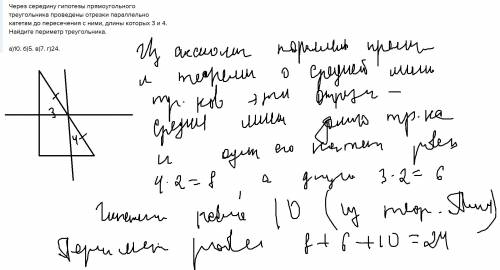 Через середину гипотезы прямоугольного
треугольника проведены отрезки параллельно
катетам до пересечения с ними, длины которых 3 и 4.
Найдите периметр треугольника.
а)10. б)5. в)7. г)24.
Из аксиомы
и теоремы о средней линии
эти отрезки -
средние линии тр.ка
и один его катет равен
4·2=8 а другой 3·2=6
3
4
Гипотенуза равна 10 (из теор.
Периметр равен 8+6+10=24